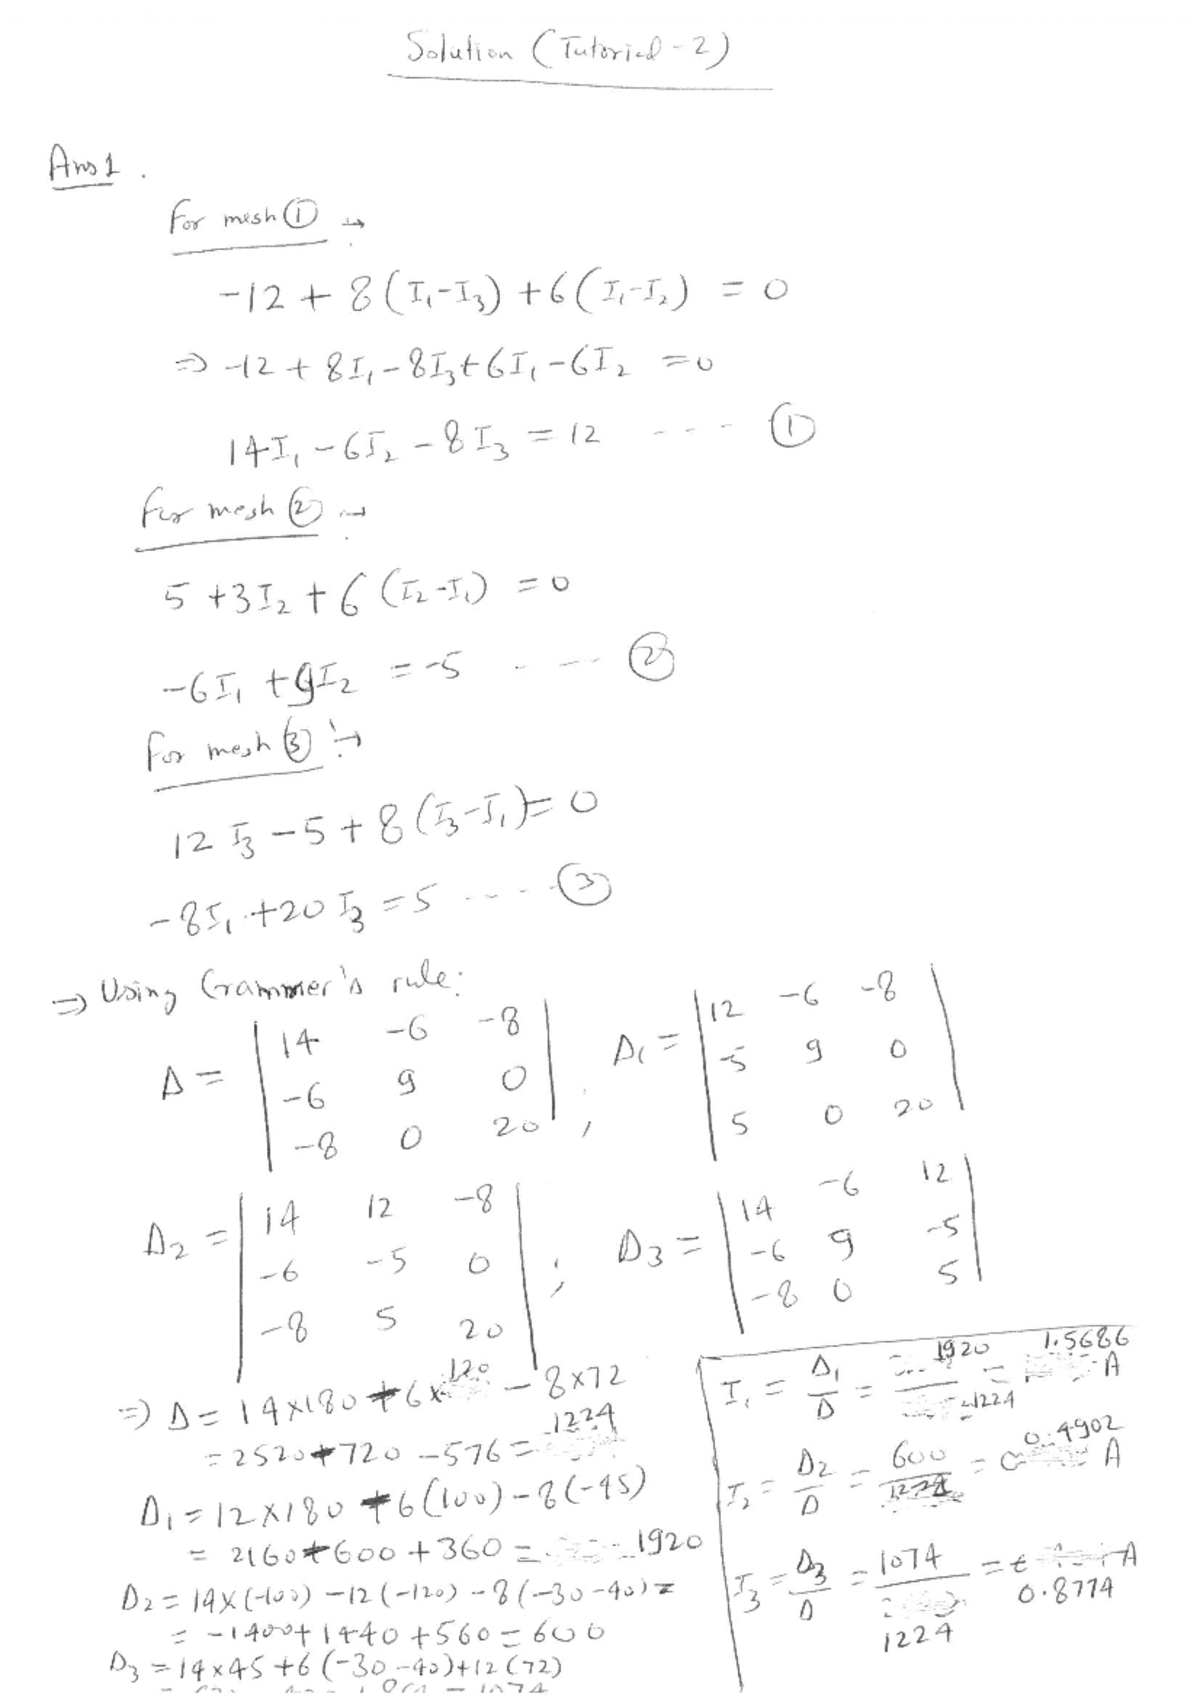 Solution (Tutorial - 2)
Ans 1 .
For mesh ① :→
-12 + 8 (I₁-I₃) + 6 (I₁-I₂) = 0
⇒ -12 + 8I₁ - 8I₃ + 6I₁ - 6I₂ = 0
14I₁ - 6I₂ - 8I₃ = 12 ---- ①
For mesh ② :→
5 + 3I₂ + 6 (I₂-I₁) = 0
-6I₁ + 9I₂ = -5 ---- ②
For mesh ③ :→
12 I₃ - 5 + 8 (I₃-I₁) = 0
-8I₁ + 20 I₃ = 5 ---- ③
⇒ Using Crammer's rule:
Δ = | 14 -6 -8 | , Δ₁ = | 12 -6 -8 |
| -6 9 0 | | -5 9 0 |
| -8 0 20 | | 5 0 20 |
Δ₂ = | 14 12 -8 | ; Δ₃ = | 14 -6 12 |
| -6 -5 0 | | -6 9 -5 |
| -8 5 20 | | -8 0 5 |
⇒ Δ = 14×180 + 6×120 - 8×72
= 2520 + 720 - 576 = 1224
Δ₁ = 12×180 + 6(100) - 8(-45)
= 2160 + 600 + 360 = 1920
Δ₂ = 14×(-100) - 12(-120) - 8(-30-40) =
= -1400 + 1440 + 560 = 600
Δ₃ = 14×45 + 6(-30-40) + 12(72)
= 1074
I₁ = Δ₁/Δ = 1920/1224 = 1.5686 A
I₂ = Δ₂/Δ = 600/1224 = 0.4902 A
I₃ = Δ₃/Δ = 1074/1224 = 0.8774 A